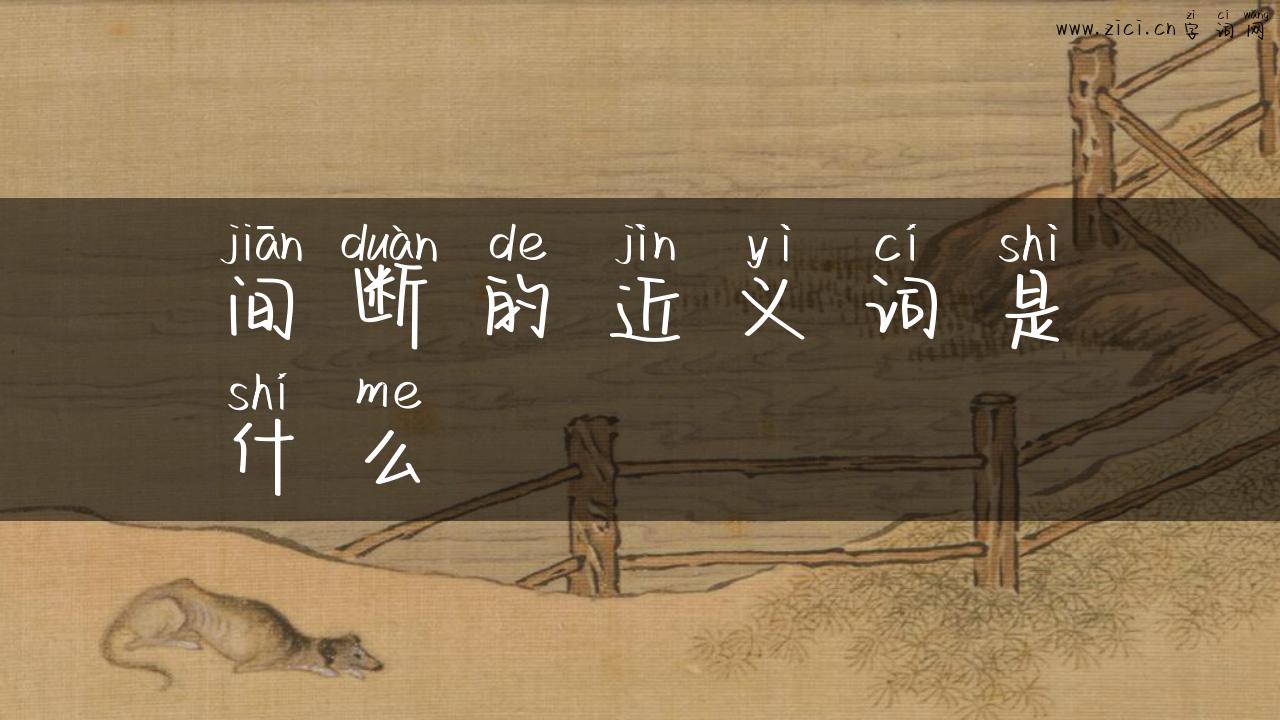 zì cí wǎng
www.zici.cn 字词网
jiān duàn de jìn yì cí shì
间断的近义词是
shí me
什么